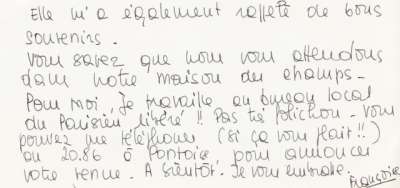 Elle m'a également rappelé de bons
souvenirs.
Vous savez que nous vous attendons
dans notre maison des champs -
Pour moi, Je travaille au bureau local
du Parisien libéré !! Pas très folichon - Vous
pouvez me téléphoner (si ça vous plait !!)
au 20.86 à Pontoise pour annoncer
votre venue. A bientôt. Je vous embrasse.
Françoise